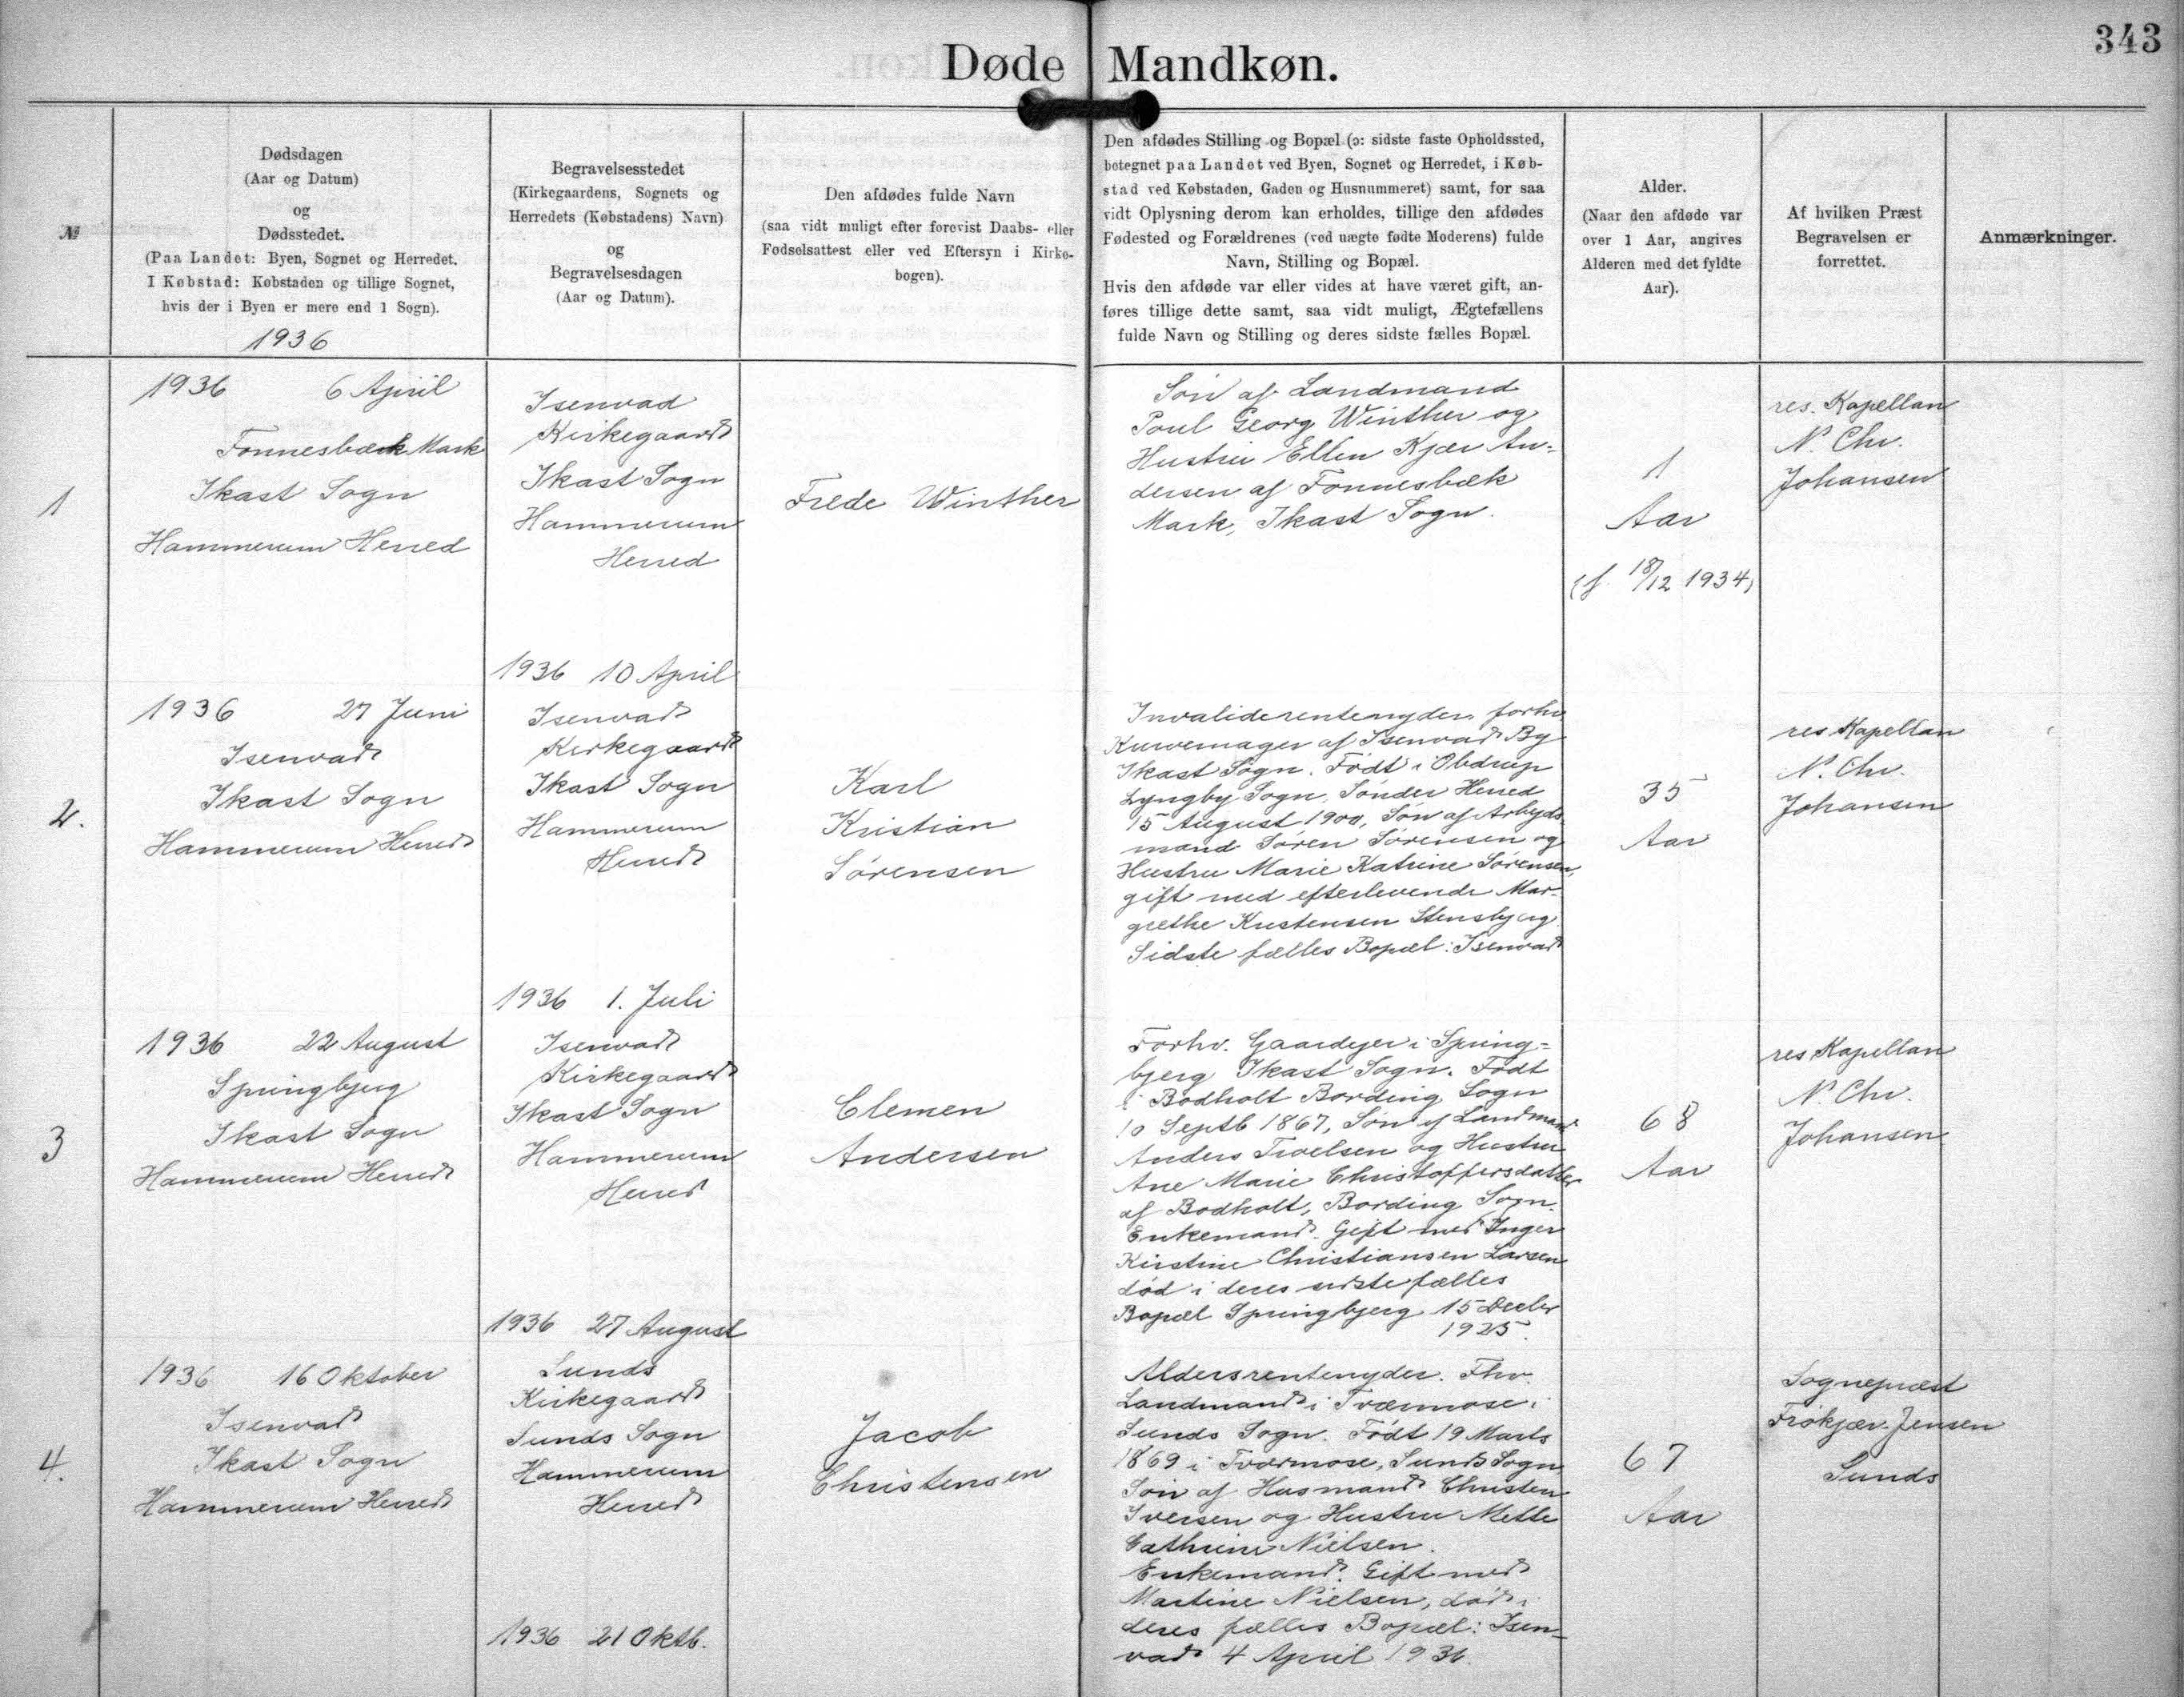 343
Døde Mandkøn.
№
Dødsdagen
(Aar og Datum)
og
Dødsstedet.
(Paa Landet: Byen, Sognet og Herredet.
I Købstad: Købstaden og tillige Sognet,
hvis der i Byen er mere end 1 Sogn).
1936
Begravelsesstedet
(Kirkegaardens, Sognets og
Herredets (Købstadens) Navn)
og
Begravelsesdagen
(Aar og Datum).
Den afdødes fulde Navn
(saa vidt muligt efter forevist Daabs- eller
Fødselsattest eller ved Eftersyn i Kirke-
bogen).
Den afdødes Stilling og Bopæl (ɔ: sidste faste Opholdssted,
betegnet paa Landet ved Byen, Sognet og Herredet, i Køb-
stad ved Købstaden, Gaden og Husnummeret) samt, for saa
vidt Oplysning derom kan erholdes, tillige den afdødes
Fødested og Forældrenes (ved uægte fødte Moderens) fulde
Navn, Stilling og Bopæl.
Hvis den afdøde var eller vides at have været gift, an-
føres tillige dette samt, saa vidt muligt, Ægtefællens
fulde Navn og Stilling og deres sidste fælles Bopæl.
Alder.
(Naar den afdøde var
over 1 Aar, angives
Alderen med det fyldte
Aar).
Af hvilken Præst
Begravelsen er
forrettet.
Anmærkninger.
1
1936 6 April
Fonnesbæk Mark
Ikast Sogn
Hammerum Herred
Isenvad
Kirkegaard
Ikast Sogn
Hammerum
Herred
1936 10 April
Frede Winther
Søn af Landmand
Poul Georg Winther og
Hustru Ellen Kjær An-
dersen af Fonnesbæk
Mark, Ikast Sogn.
1
Aar
(f. 18/12 1934)
res. Kapellan
N. Chr.
Johansen
2.
1936 27 Juni
Isenvad
Ikast Sogn
Hammerum Herred
Isenvad
Kirkegaard
Ikast Sogn
Hammerum
Herred
1936 1. Juli
Karl
Kristian
Sørensen
Invaliderentenyder, forhv
Kurvemager af Isenvad By
Ikast Sogn. Født i Obdrup
Lyngby Sogn, Sønder Herred
15 August 1900, Søn af Arbejds-
mand Søren Sørensen og
Hustru Marie Katrine Sørensen,
gift med efterlevende Mar-
grethe Kristensen Stensbjerg
Sidste fælles Bopæl: Isenvad
35
Aar
res Kapellan
N. Chr.
Johansen
3
1936 22 August
Springbjerg
Ikast Sogn
Hammerum Herred
Isenvad
Kirkegaard
Ikast Sogn
Hammerum
Herred
1936 27 August
Clemen
Andersen
Forhv. Gaardejer i Spring-
bjerg Ikast Sogn. Født
i Bodholt Bording Sogn
10 Septb 1867, Søn af Landmand
Anders Troelsen og Hustru
Ane Marie Christoffersdatter
af Bodholt, Bording Sogn.
Enkemand. Gift med Inger
Kirstine Christiansen Larsen
død i deres sidste fælles
Bopæl Springbjerg 15 Decbr
1925.
68
Aar
res Kapellan
N. Chr.
Johansen
4.
1936 16 Oktober
Isenvad
Ikast Sogn
Hammerum Herred
Sunds
Kirkegaard
Sunds Sogn
Hammerum
Herred
1936 21 Oktb.
Jacob
Christensen
Aldersrentenyder. Fhv.
Landmand i Tværmose i
Sunds Sogn. Født 19 Marts
1869 i Tværmose, Sunds Sogn
Søn af Husmand Christen
Iversen og Hustru Mette
Cathrine Nielsen.
Enkemand. Gift med
Martine Nielsen, død i
deres fælles Bopæl: Isen-
vad 4 April 1936.
67
Aar
Sognepræst
Frøkjær Jensen
Sunds